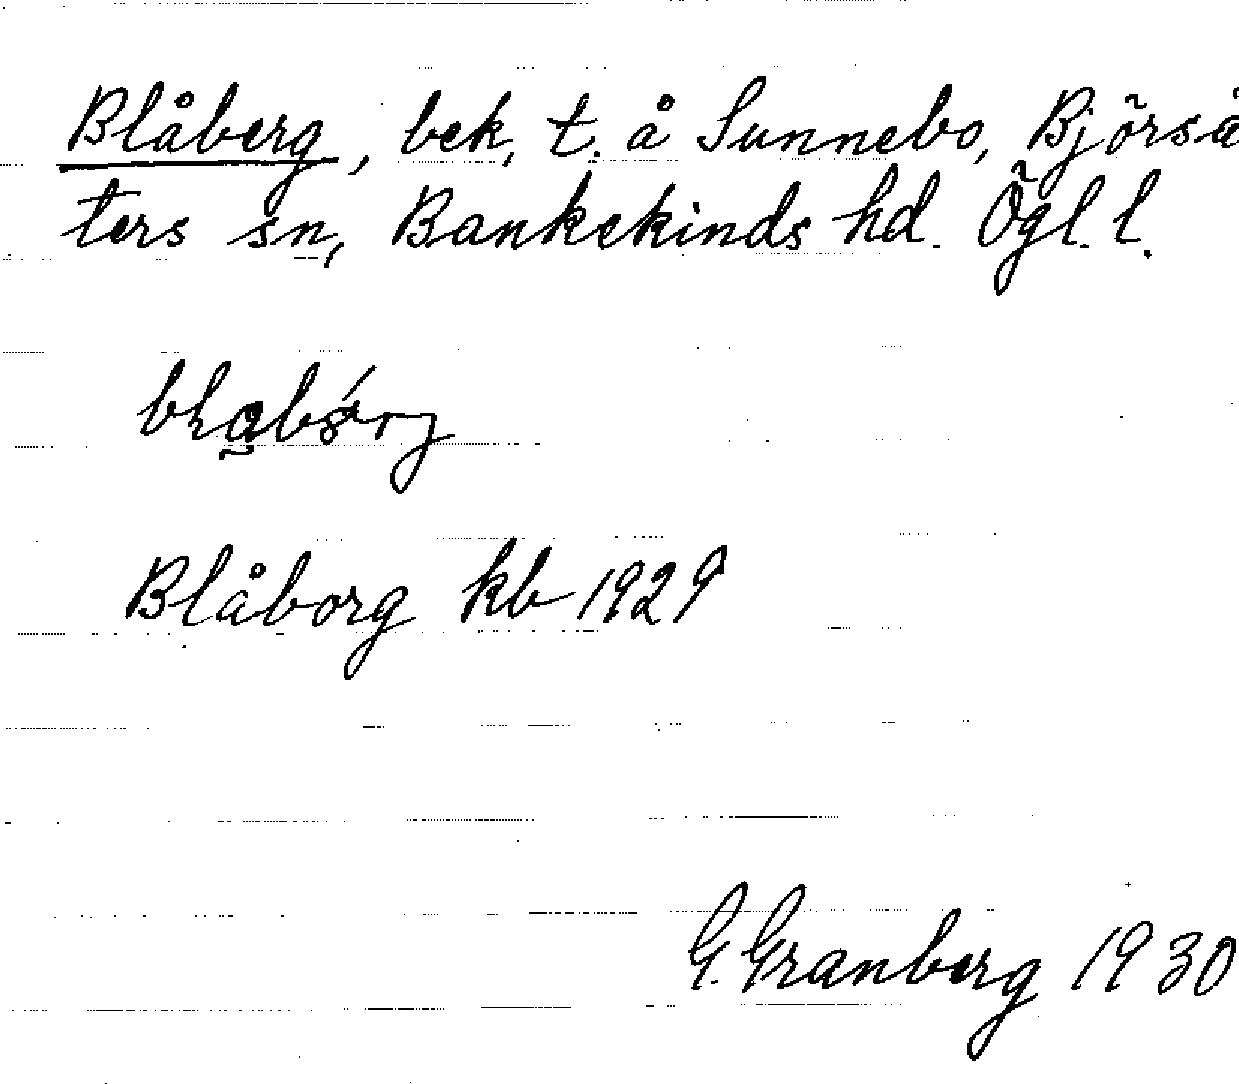 Blåberg, bek. t. å Sunnebo, Björsä
ters sn, Bankekinds hd. Ögl. l.
Blåborg kb 1929
G. Granberg 1930